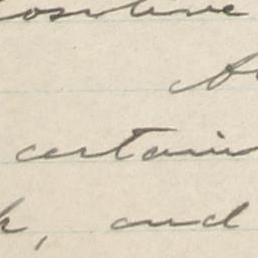 positive
certain
, and